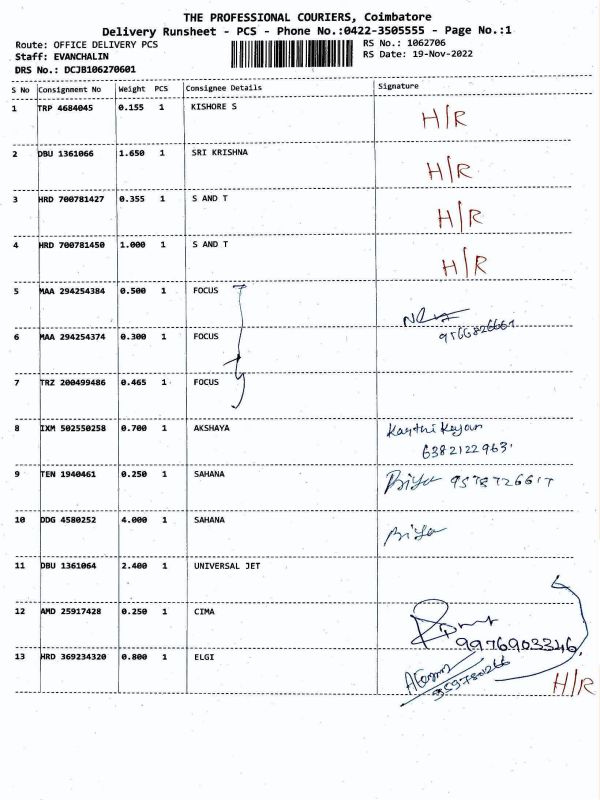 THE PROFESSIONAL COURIERS, Coimbatore
Delivery Runsheet - PCS - Phone No.:0422-3505555 - Page No.:1
Route: OFFICE DELIVERY PCS
RS No.: 1062706
Staff: EVANCHALIN
RS Date: 19-Nov-2022
DRS No.: DCJB106270601
S No Consignment No Weight PCS Consignee Details Signature
1 TRP 4684045 0.155 1 KISHORE S
H/R
2 DBU 1361066 1.650 1 SRI KRISHNA
H/R
3 HRD 700781427 0.355 1 S AND T
H/R
4 HRD 700781450 1.000 1 S AND T
H/R
5 MAA 294254384 0.500 1 FOCUS
6 MAA 294254374 0.300 1 FOCUS
7 TRZ 200499486 0.465 1 FOCUS
8 IXM 502550258 0.700 1 AKSHAYA
Karthi Keyan
6382122963
9 TEN 1940461 0.250 1 SAHANA
Priya
10 DDG 4580252 4.000 1 SAHANA
Priya
11 DBU 1361064 2.400 1 UNIVERSAL JET
12 AMD 25917428 0.250 1 CIMA
9976903346
13 HRD 369234320 0.800 1 ELGI
H/R